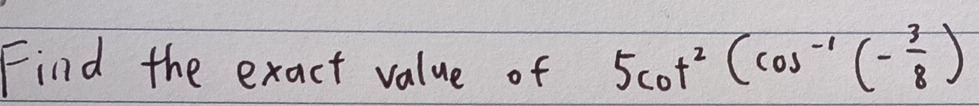 Find the exact value of 5cot² (cos⁻¹ (-3/8)